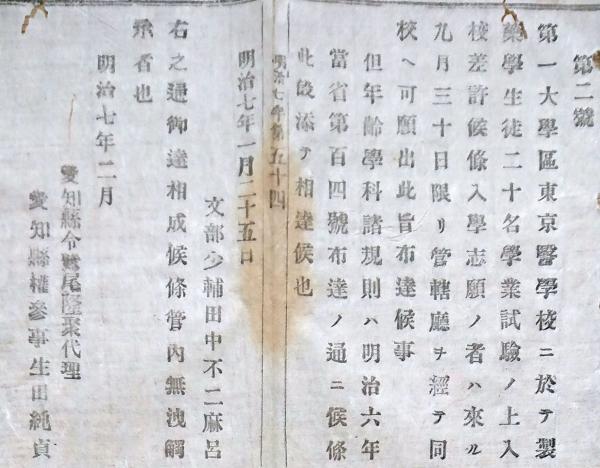 第二號
第一大學區東京醫學校ニ於テ製
藥學生徒二十名學業試驗ノ上入
校差許候條入學志願ノ者ハ來ル
九月三十日限リ管轄廳ヲ經テ同
校ヘ可願出此旨布達候事
但年齡學科諸規則ハ明治六年
當省第百四號布達ノ通ニ候條
此段添テ相達候也
明治七年第五十四
明治七年一月二十五日
文部少輔田中不二麻呂
右之通御達相成候條管內無洩觸
示者也
明治七年二月
愛知縣令鷲尾隆聚代理
愛知縣權參事生田純貞